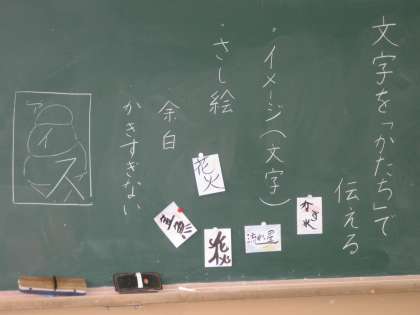 文字を「かたち」で
伝える
・イメージ(文字)
・さし絵
・余白
・かきすぎない
アイス
花火
かき氷
流れ星
花火